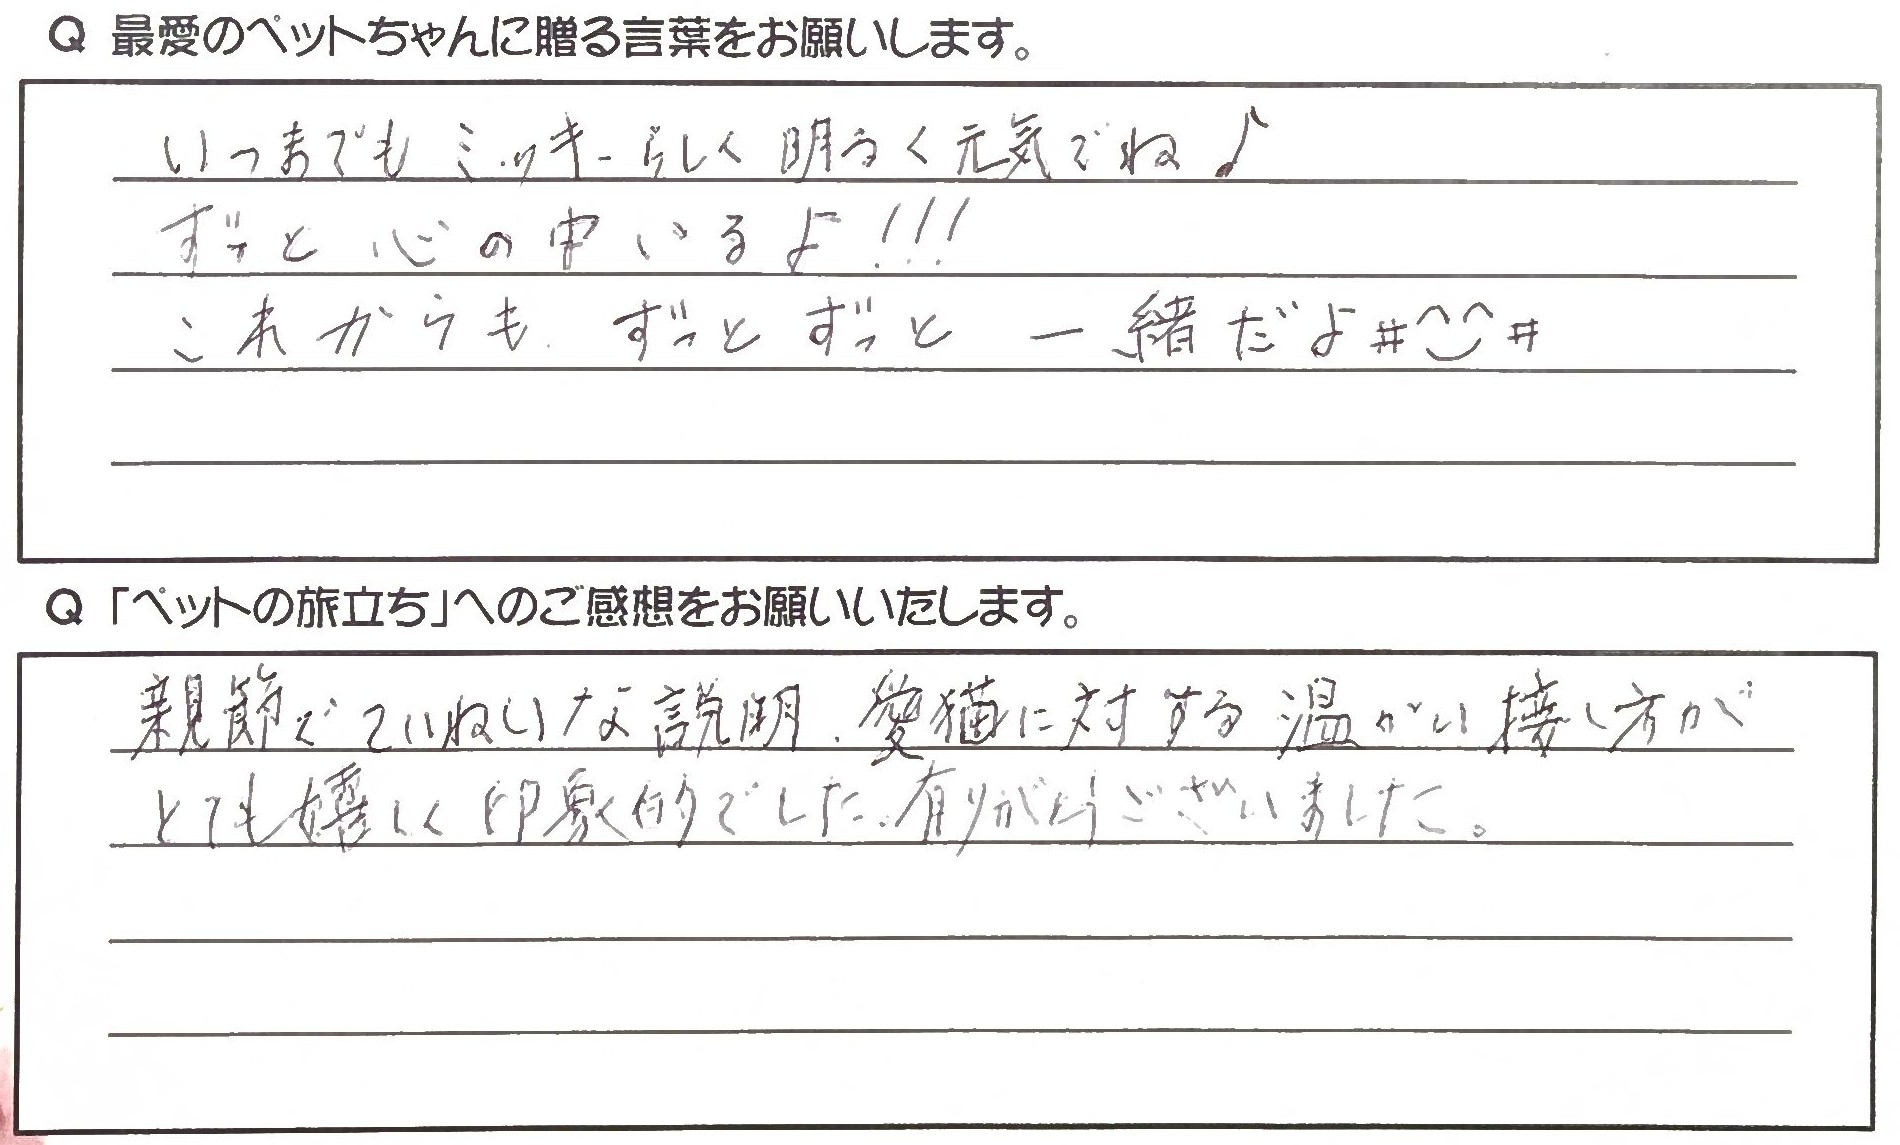 Q 最愛のペットちゃんに贈る言葉をお願いします。
いつまでもミッキーらしく明るく元気でね♪
ずっと心の中いるよ!!!
これからも ずっとずっと 一緒だよ#^‿^#
Q 「ペットの旅立ち」へのご感想をお願いいたします。
親節でていねいな説明、愛猫に対する温かい接し方が
とても嬉しく印象的でした。有りがとうございました。